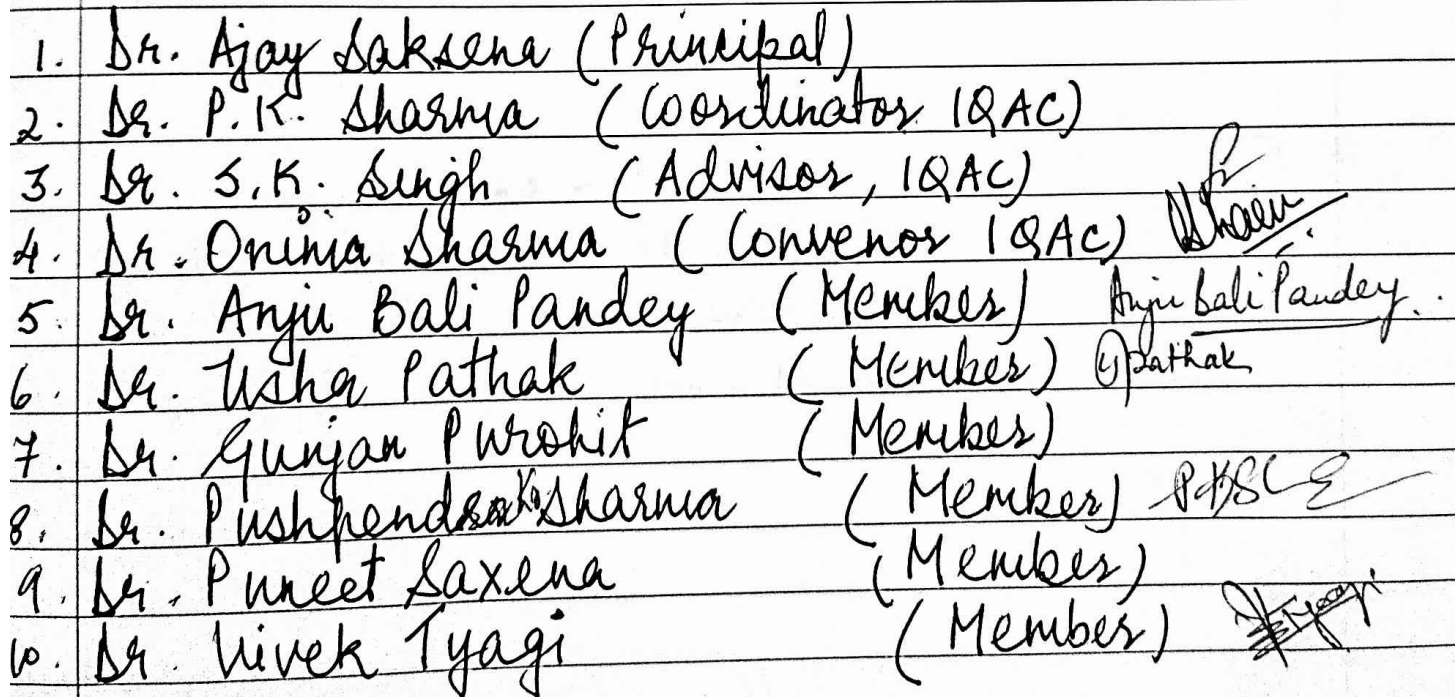 1. Dr. Ajay Saksena (Principal)
2. Dr. P.K. Sharma (Coordinator IQAC)
3. Dr. S.K. Singh (Advisor, IQAC)
4. Dr. Onima Sharma (Convenor IQAC)
5. Dr. Anju Bali Pandey (Member) Anju Bali Pandey.
6. Dr. Usha Pathak (Member) UPathak
7. Dr. Gunjan Purohit (Member)
8. Dr. Pushpendra Kr Sharma (Member)
9. Dr. Puneet Saxena (Member)
10. Dr. Vivek Tyagi (Member)